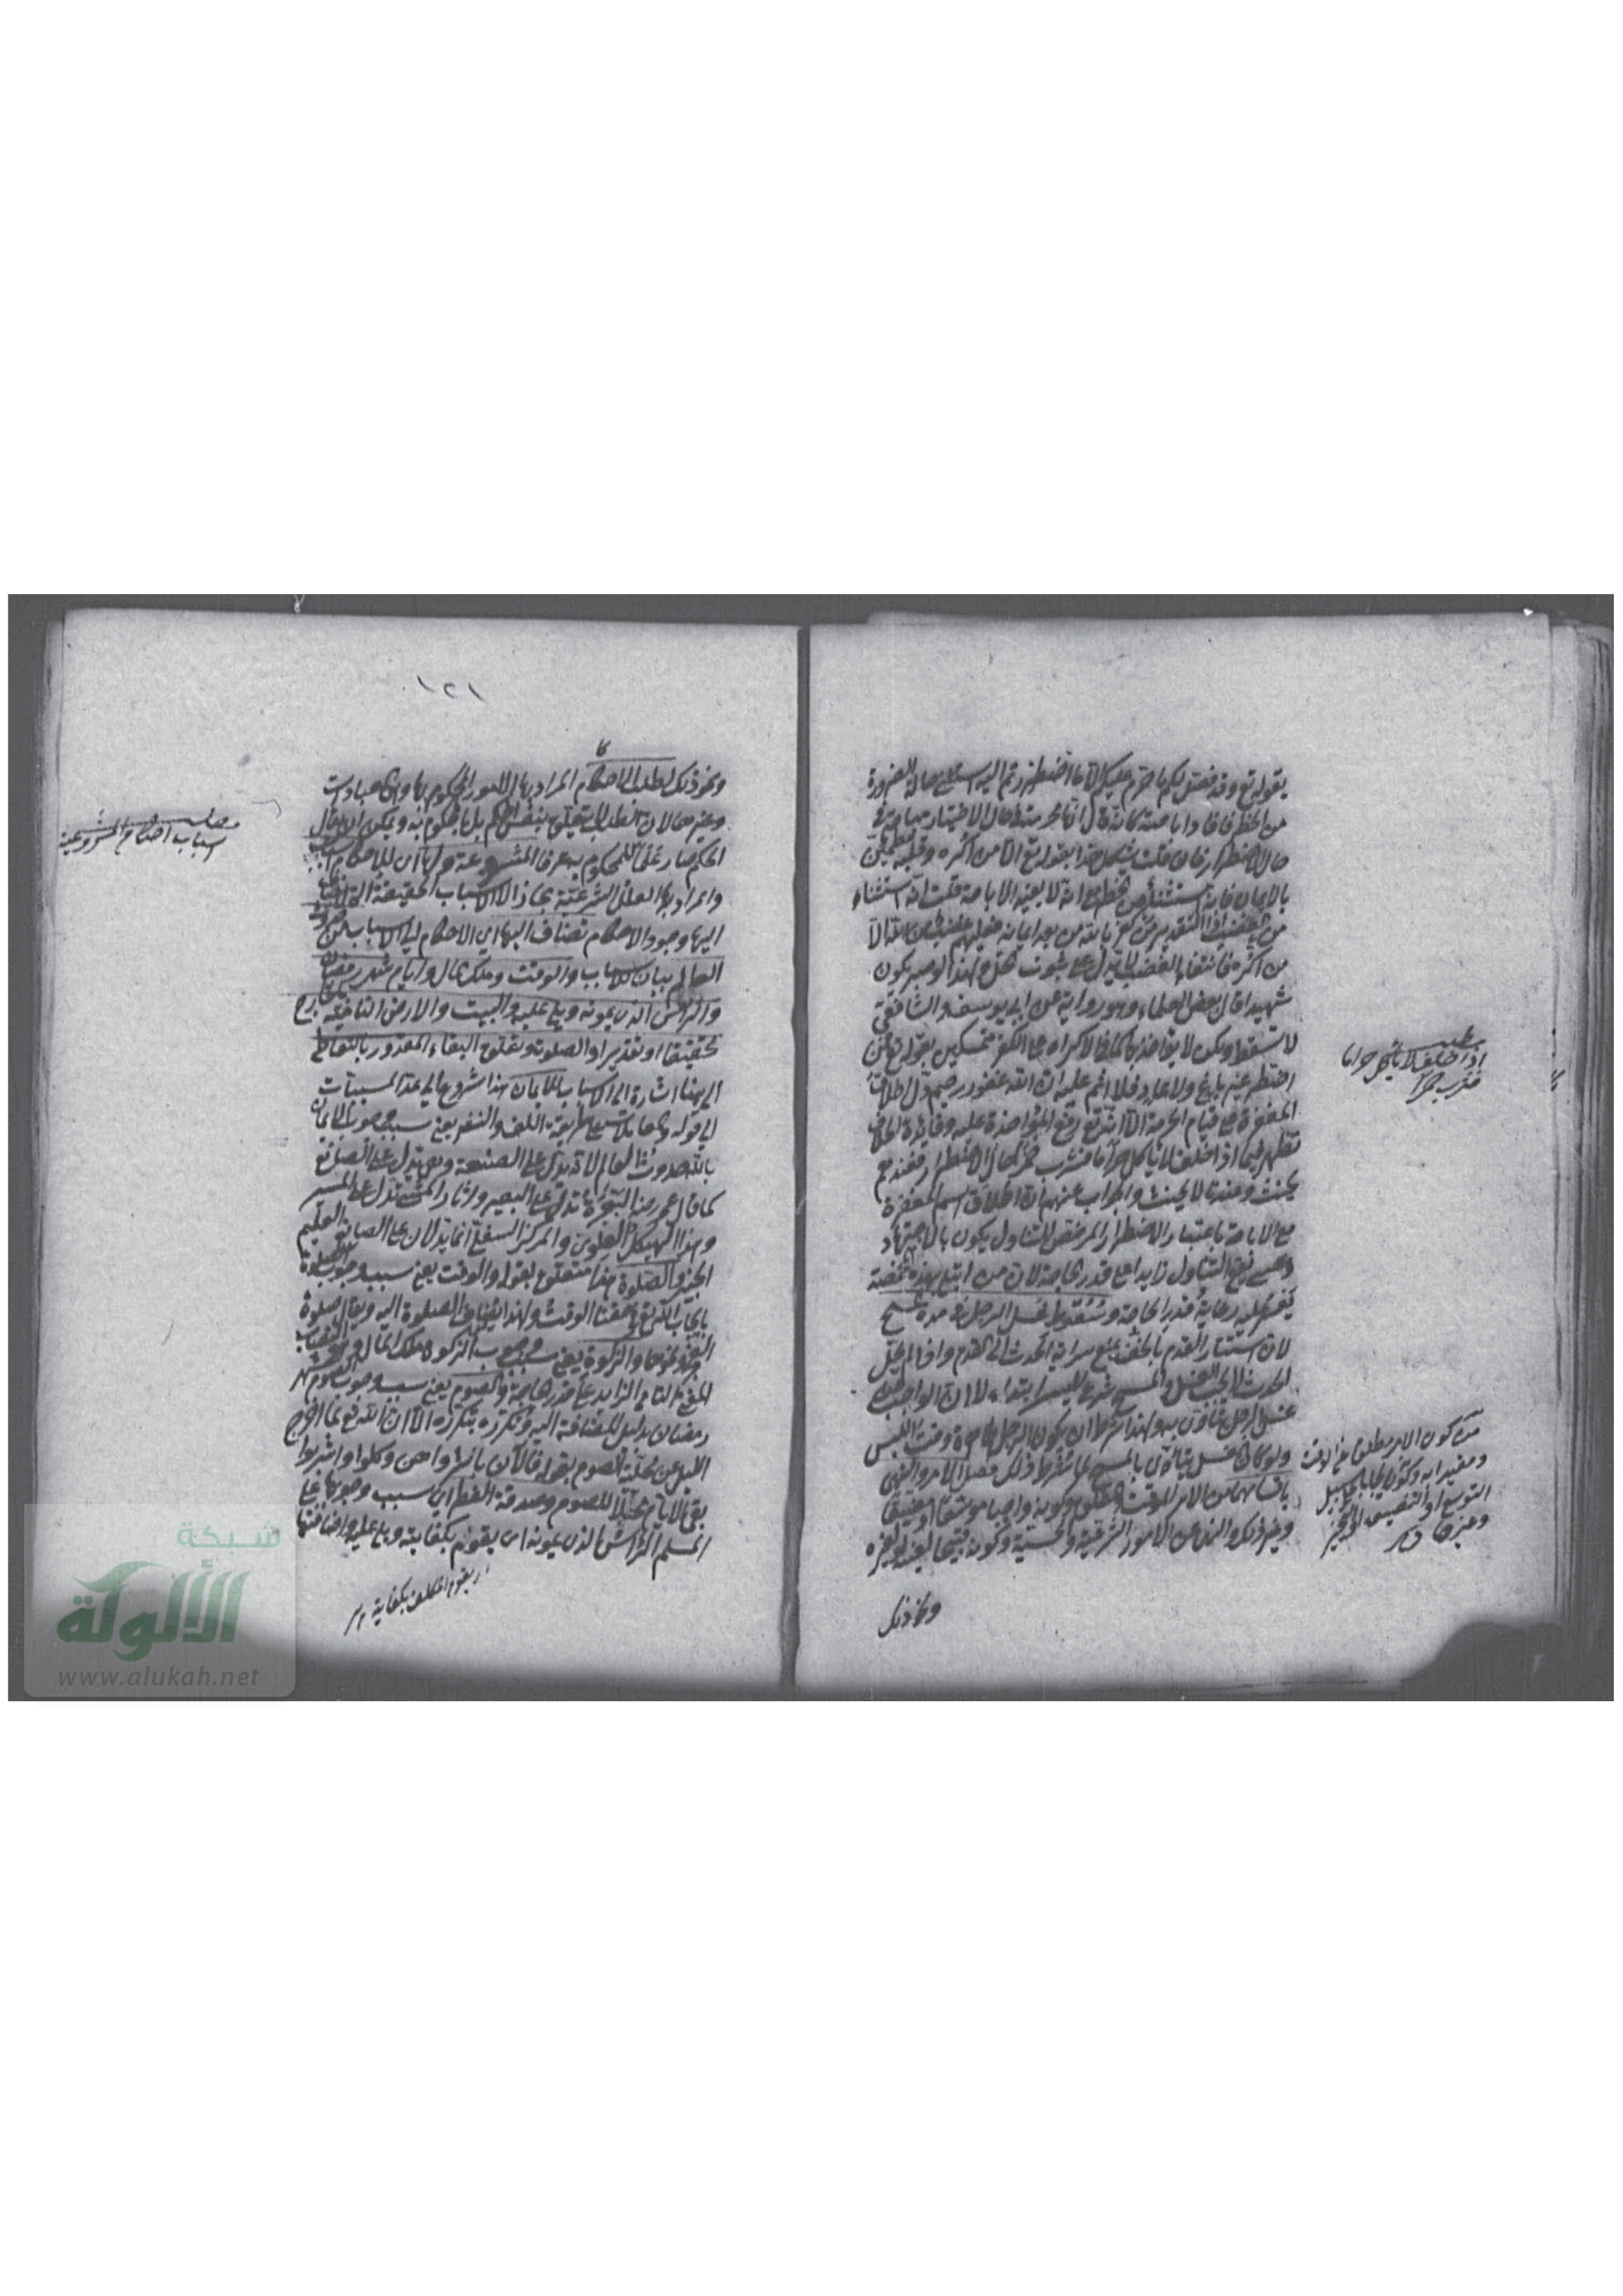 بقوله تع وقد فصل لكم ما حرم عليكم الا ما اضطررتم اليه استثنى حالة الضرورة
من الحظر فافاد اباحة كانه قال انها محرمة في حال الاختيار مباحة في
حال الاضطرار فان قلت يشكل هذا بقوله تع الا من اكره وقلبه مطمئن
بالايمان فانه استثناء من الحظر مع انه لا يفيد الاباحة قلت انه استثناء
من الغضب اذ التقدير من كفر بالله من بعد ايمانه فعليهم غضب من الله الا
من اكره فانتفاء الغضب لا يدل على ثبوت الحل ولهذا لو صبر يكون
شهيدا قال بعض العلماء وهو رواية عن ابي يوسف والشافعي
لا تسقط ولكن لا يؤاخذ بها كما في الاكراه على الكفر متمسكين بقوله تع فمن
اضطر غير باغ ولا عاد فلا اثم عليه ان الله غفور رحيم دل اطلاق
المغفرة على قيام الحرمة الا انه تع رفع المؤاخذة عليه وفائدة الخلاف
تظهر فيما اذا حلف لا ياكل حراما فشرب خمرا حال الاضطرار فعندهم
يحنث وعندنا لا يحنث والجواب عنهم ان اطلاق اسم المغفرة
مع الاباحة باعتبار الاضطرار المرخص للتناول يكون بالاجتهاد
وعسى يقع التناول زايدا على قدر الحاجة لان من ابتلي بهذه المخمصة
يعسر عليه رعاية قدر الحاجة وسقوط غسل الرجل في مدة المسح
لان استتار القدم بالخف يمنع سراية الحدث الى القدم واذا لم يحل
الحدث لا يجب الغسل والمسح شرع لليسر ابتداء لا ان الواجب من
غسل الرجل يتادى به ولهذا شرط ان يكون الرجل طاهرة وقت اللبس
ولو كان الغسل يتادى بالمسح لما شرط ذلك فصل الامر والنهي
باقسامهما من الامر الموقت والمطلق وكونه واجبا موسعا او مضيقا
وغير ذلك والنهي عن الامور الشرعية والحسية وكونه قبيحا لعينه او لغيره
ونحو ذلك
اذا حلف لا ياكل حراما
فشرب خمرا
من كون الامر مطلق عن الوقت
ومقيدا به وكون الطلب على سبيل
التوسع او التضييق
١٢١
ونحو ذلك لطلب الاحكام المراد بها الامور المحكوم بها وهي العبادات
وغيرها لان الطلب لا يتعلق بنفس الحكم بل بالمحكوم به ويمكن ان يقال
الحكم صار علما للمحكوم به عرفا المشروعة ولها اي للاحكام اسباب
والمراد بها العلل الشرعية مجازا لا الاسباب الحقيقية التي تضاف
اليها وجود الاحكام تضاف اليها اي الاحكام الى الاسباب من حدوث
العالم بيان للاسباب والوقت وملك المال وايام شهر رمضان
والراس الذي يمونه ويلي عليه والبيت والارض النامية
تحقيقا او تقديرا والصلوة وتعلق البقاء المقدور بالتعاطي
الى هنا اشارة الى الاسباب للايمان هذا شروع الى عد المسببات
الى قوله والمعاملات على طريقة اللف والنشر يعني سبب وجوب الايمان
بالله حدوث العالم لانه يدل على الصنعة وهي تدل على الصانع
كما قال عمر رض البعرة تدل على البعير واثار المشي تدل على المسير
وهذا الهيكل العلوي والمركز السفلي اما يدلان على الصانع العليم
الخبير والصلوة هذا متعلق بقوله والوقت يعني سبب وجوب الصلوة
بايجاب الله تع في حقنا الوقت ولهذا يضاف الصلوة اليه ويقال صلوة
الفجر ونحوها والزكوة يعني سبب وجوب الزكوة ملك المال وهو النصاب
المغني النامي الزايد على قدر الحاجة والصوم يعني سبب وجوب الصوم شهر
رمضان بدليل اضافته اليه وتكرره بتكرره الا ان الله تع لما اخرج
الليل عن محلية الصوم بقوله فالان باشروهن وكلوا واشربوا
بقي الايام محلا للصوم وصدقة الفطر اي سبب وجوبها على
المسلم الراس الذي يمونه اي يقوم بكفايته ويلي عليه واضافتها
اي يقوم المكلف بكفايته
مطلب
اسباب احكام المشروعية
شبكة
الألوكة
www.alukah.net